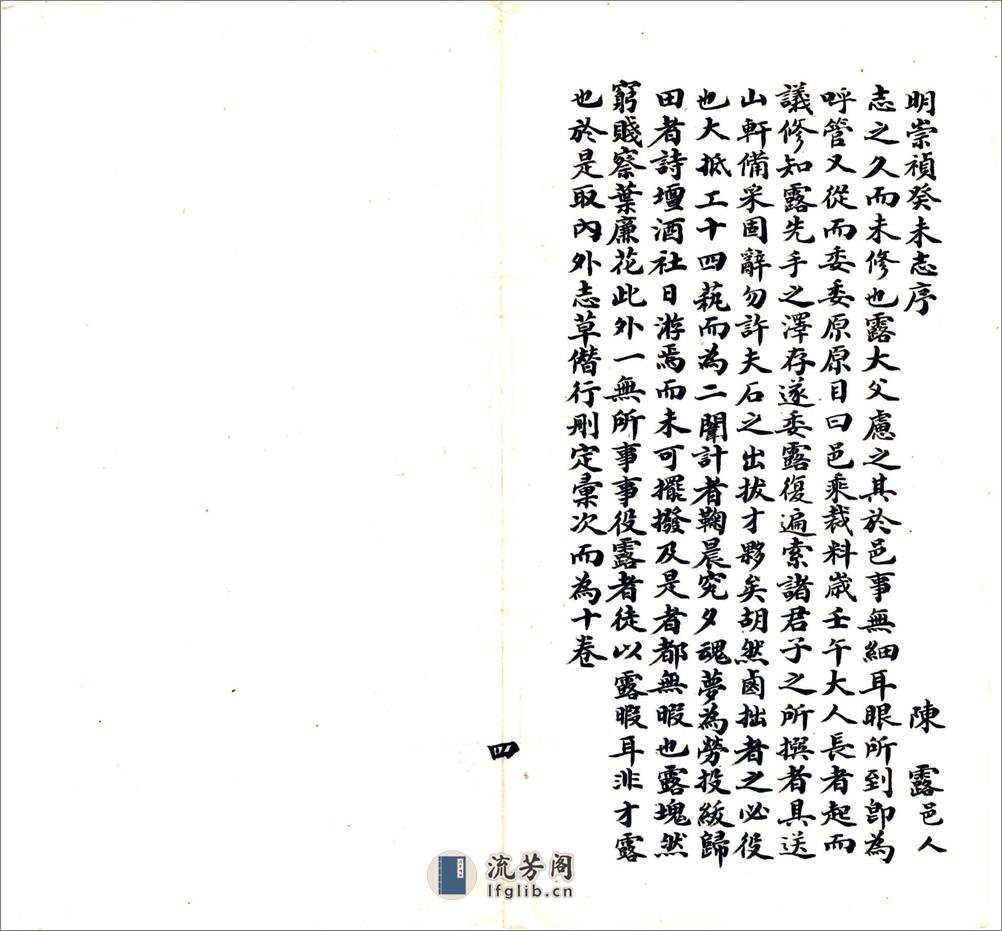 明崇禎癸未志序 陳 露邑人
志之久而未修也露大父慮之其於邑事無細耳眼所到卽為
呼管又從而委委原原目曰邑乘裁料歲壬午大人長者起而
議修知露先手之澤存遂委露復遍索諸君子之所撰者具送
山軒備采固辭勿許夫石之出拔才夥矣胡然鹵拙者之必役
也大抵工十四蓺而為二闈計者鞠晨究夕魂夢為勞投綬歸
田者詩壇酒社日游焉而未可擺撥及是者都無暇也露塊然
窮賤察葉廉花此外一無所事事役露者徒以露暇耳非才露
也於是取內外志草僭行刪定彙次而為十卷
四
流芳阁
lfglib.cn